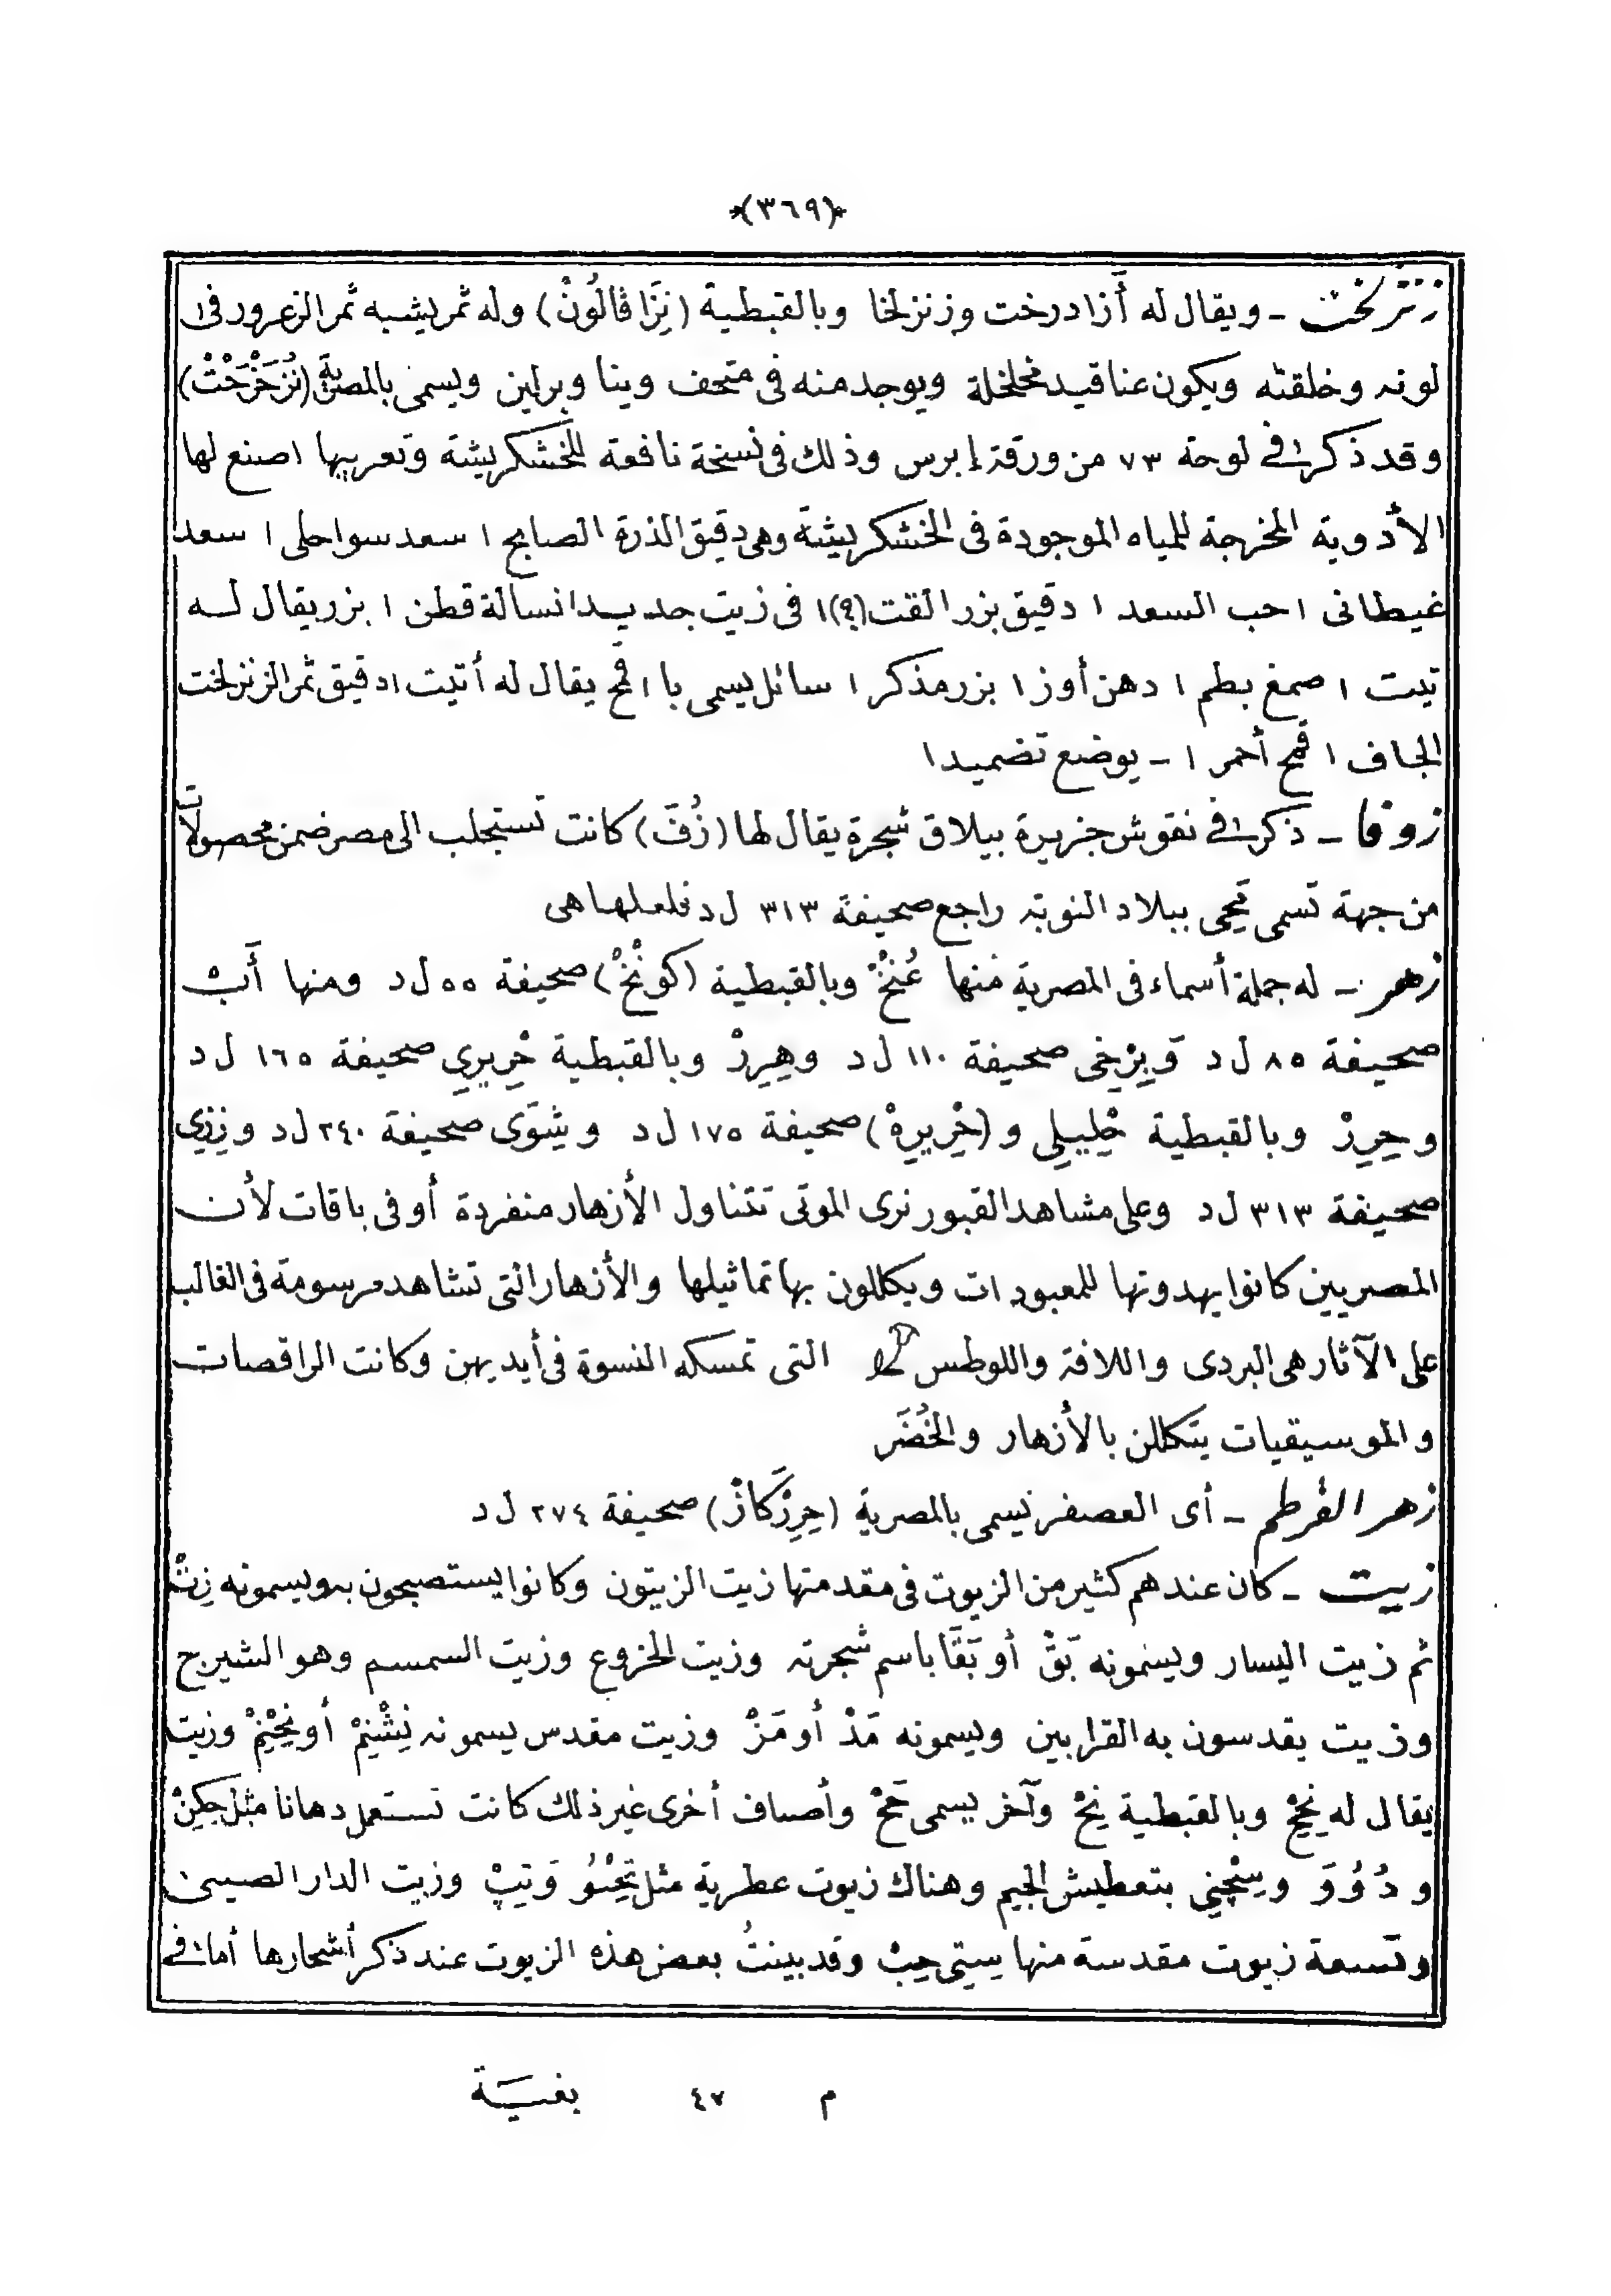 *(٣٦٩)*
زنزلخت ـ ويقال له أزادرخت وزنزلخا وبالقبطية (نِزَاڤَالُونْ) وله ثمر يشبه ثمر الزعرور فى ا
لونه وخلقته ويكون عناقيد مخلخلة ويوجد منه فى متحف وينا وبرلين ويسمى بالمصرية (نُزْخَرْخَتْ)
وقد ذكر فى لوحة ٧٣ من ورقة إبرس وذلك فى نسخة نافعة للخشكريشة وتعريبها اصنع لها
الأدوية المخرجة للمياه الموجودة فى الخشكريشة وهى دقيق الذرة الصابح ١ سعد سواحلى ١ سعد
غيطانى ١ حب السعد ١ دقيق بزر القت (؟) ١ فى زيت جديد ا نسالة قطن ١ بزر يقال له
تيت ١ صمغ بطم ١ دهن أوز ١ بزر مذكر ١ سائل يسمى با ١ قمح يقال له أتيت ١ دقيق ثمر الزنزلخت
الجاف ١ قمح أحمر ١ ـ يوضع تضميدا
زوفا ـ ذكر فى نقوش جزيرة بيلاق شجرة يقال لها (زُفَ) كانت تستجلب الى مصر ضمن محصولات
من جهة تسمى تحى ببلاد النوبة راجع صحيفة ٣١٣ ل د فلعلها هى
زهر ـ له جملة أسماء فى المصرية منها عُنْخْ وبالقبطية (كونْخْ) صحيفة ٥٥ ل د ومنها أَبْ
صحيفة ٨٥ ل د وَبِرْخِى صحيفة ١١٠ ل د وهِرِرْ وبالقبطية خْرِيرِي صحيفة ١٦٥ ل د
وحِرِرْ وبالقبطية خْلِيلِى و (خْرِيرِهْ) صحيفة ١٧٥ ل د وشِوَى صحيفة ٢٤٠ ل د وزِزِي
صحيفة ٣١٣ ل د وعلى مشاهد القبور نرى الموتى تتناول الأزهار منفردة أو فى باقات لأن
المصريين كانوا يهدونها للمعبودات ويكللون بها تماثيلها والأزهار التى تشاهد مرسومة فى الغالب
على الآثار هى البردى واللافة واللوطس التى تمسكه النسوة فى أيديهن وكانت الراقصات
والموسيقيات يتكللن بالأزهار والخُضَر
زهر القرطم ـ أى العصفر يسمى بالمصرية (حِرِرْكَازْ) صحيفة ٢٧٤ ل د
زيت ـ كان عندهم كثير من الزيوت فى مقدمتها زيت الزيتون وكانوا يستصبحون به ويسمونه زِتْ
ثم زيت اليسار ويسمونه بَقْ أو بَقَا باسم شجرته وزيت الخروع وزيت السمسم وهو الشيرج
وزيت يقدسون به القرابين ويسمونه مَدْ أو مَزْ وزيت مقدس يسمونه نِشْنِمْ أو نِخْنِمْ وزيت
يقال له نِحِحْ وبالقبطية نِحْ وآخر يسمى حَحْ وأصناف أخرى غير ذلك كانت تستعمل دهانا مثل حِكِنْ
و دُوُوَ وسِجْنِي بتعطيش الجيم وهناك زيوت عطرية مثل تِحِنُو وَتِپْ وزيت الدار الصينى
وتسعة زيوت مقدسة منها سِتِى حِبْ وقد بينتُ بعض هذه الزيوت عند ذكر أشجارها أما فى
م ٤٧ بغيـة